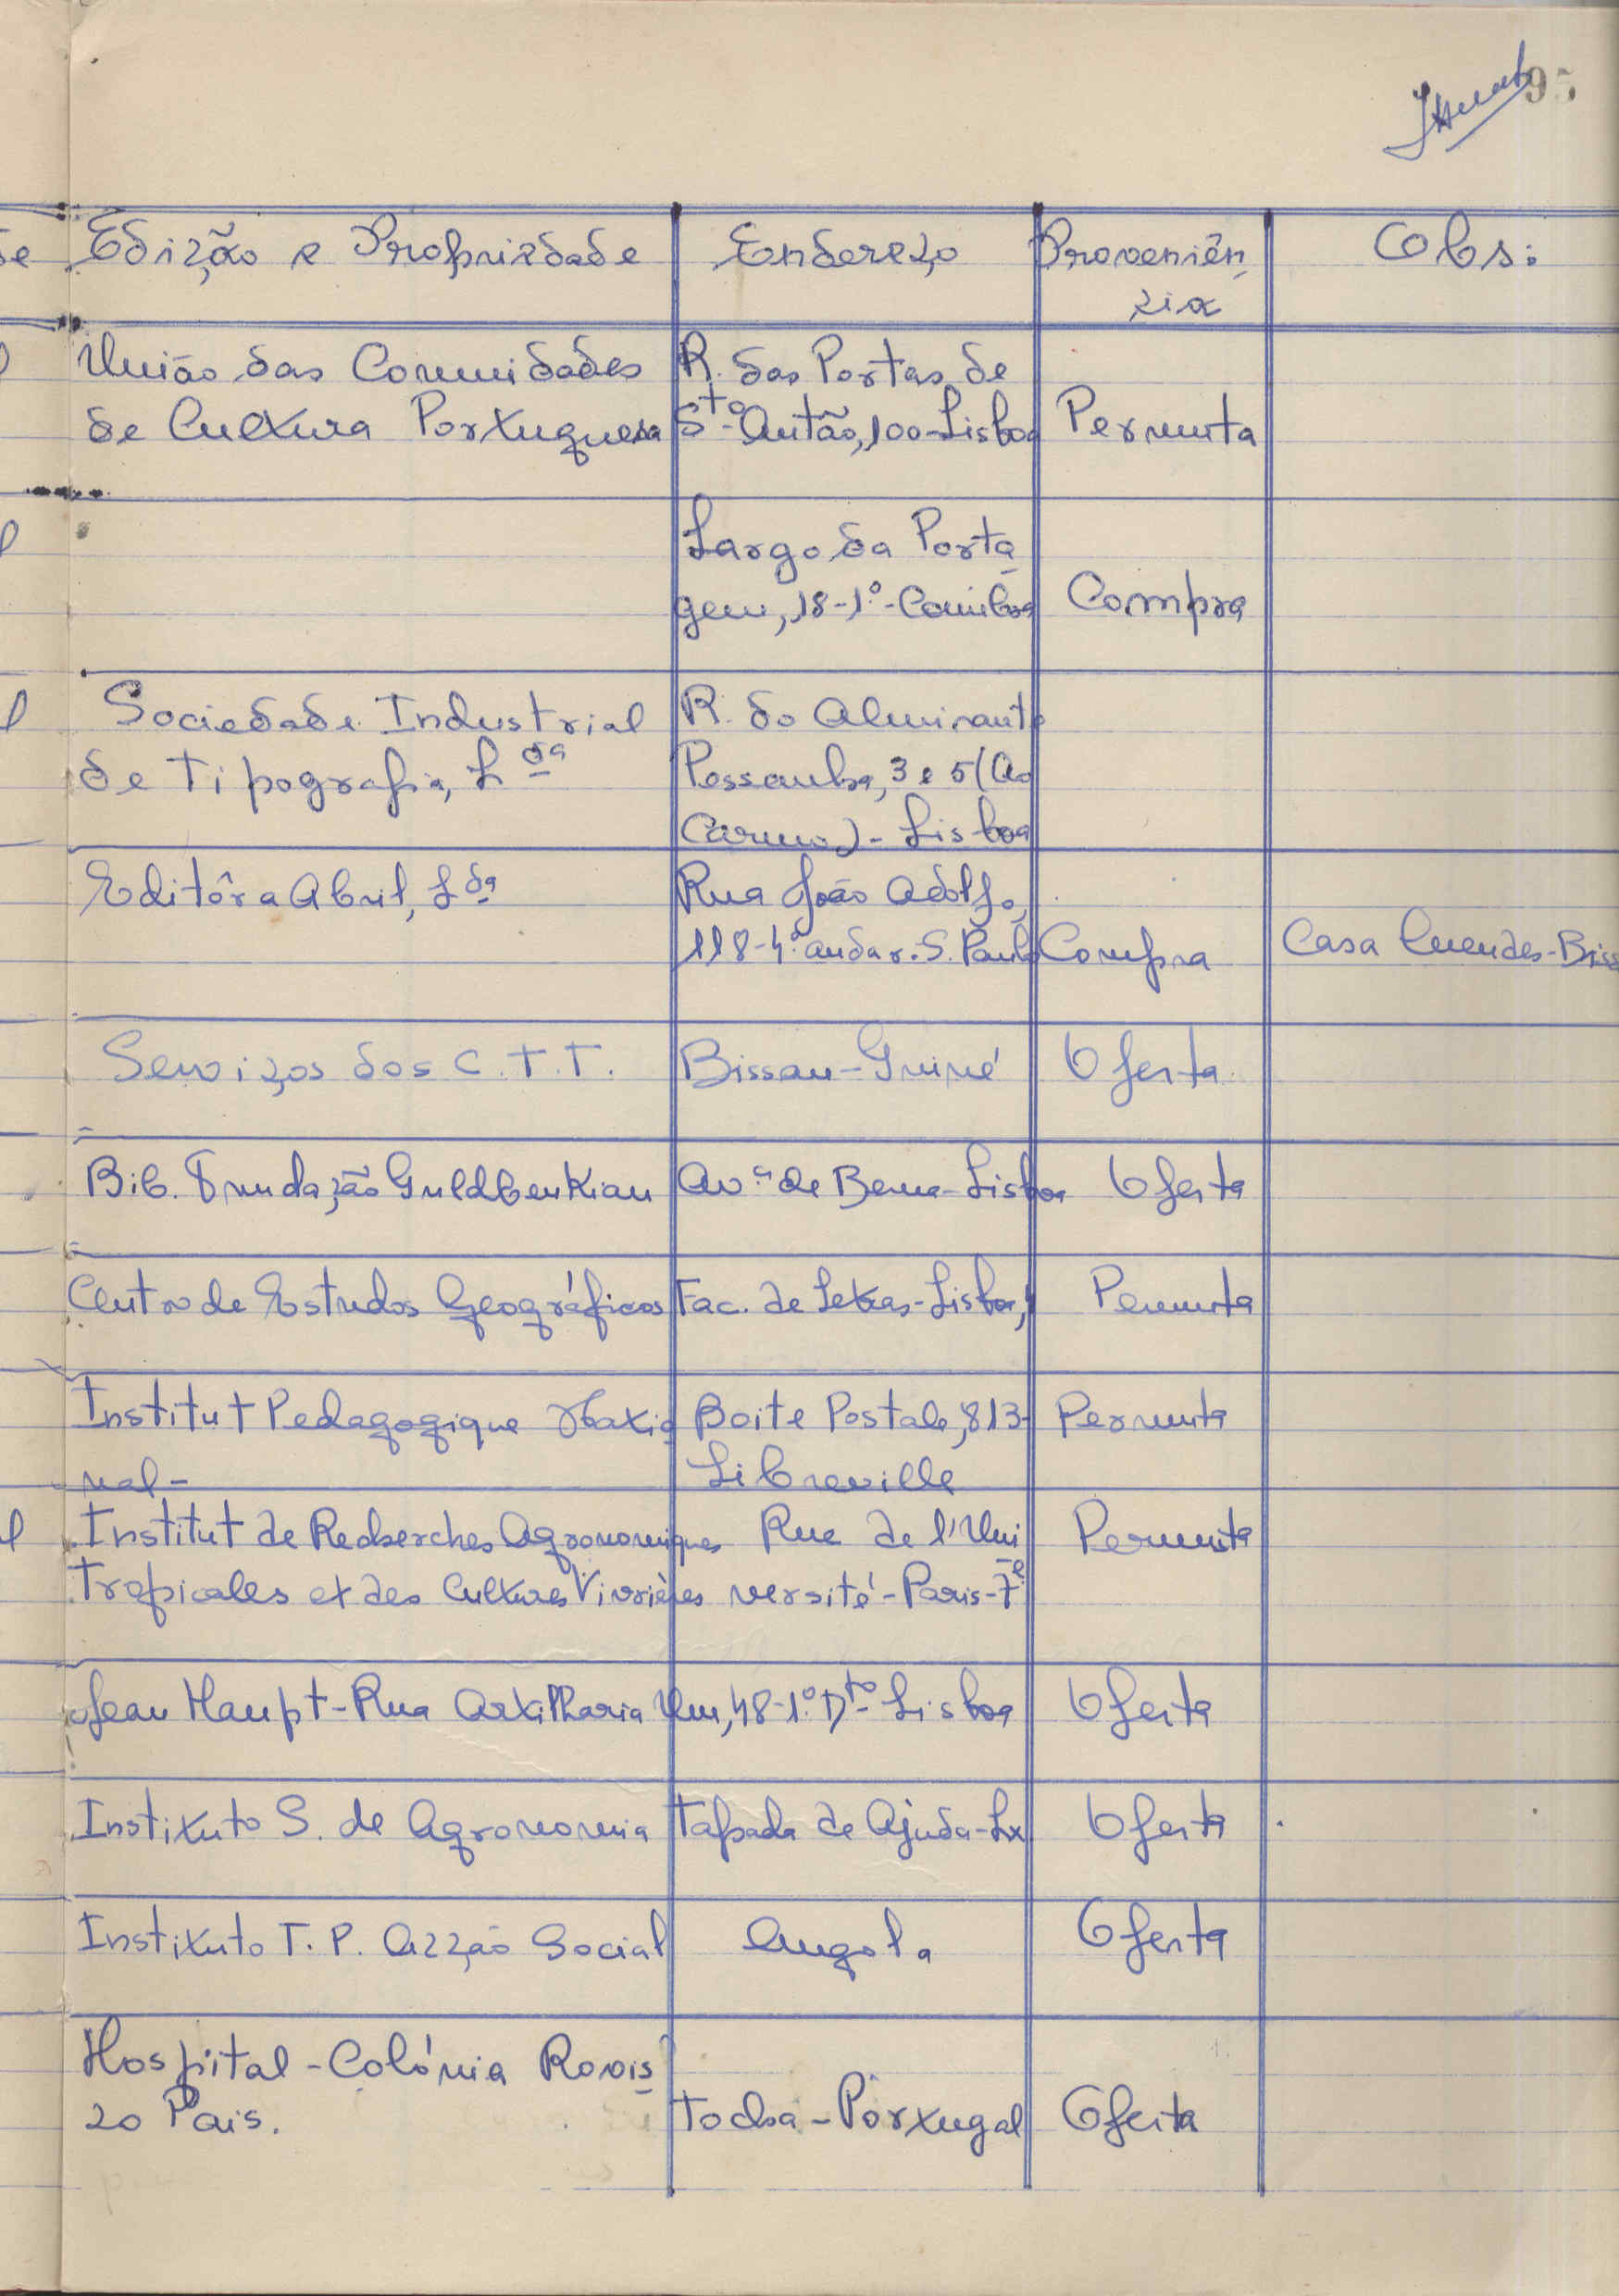 95
Edição e Propriedade Endereço Proveniên Obs:
cia
União das Comunidades R. das Portas de
de Cultura Portuguesa Stº Antão, 100-Lisboa Permuta
Largo da Porta
gem, 18-1.º-Coimbra Compra
Sociedade Industrial R. do Almirante
de Tipografia, Lda Pessanha, 3 e 5 (Ao
Carmo) - Lisboa
Editôra Abril, Lda Rua João Adolfo,
118-4.º andar-S. Paulo Compra Casa Mendes-Biss
Serviços dos C.T.T. Bissau-Guiné Oferta
Bib. Fundação Guldbenkian Av.ª de Berna-Lisboa Oferta
Centro de Estudos Geográficos Fac. de Letras-Lisboa, Permuta
Institut Pedagogique Natio Boite Postale, 813- Permuta
nal- Libreville
Institut de Recherches Agronomiques Rue de l'Uni Permuta
Tropicales et des Cultures Vivrières versité-Paris-7e
Jean Haupt-Rua Artilharia Um, 48-1.º Dtº-Lisboa Oferta
Instituto S. de Agronomia Tapada de Ajuda-Lx Oferta
Instituto T. P. Acção Social Angola Oferta
Hospital-Colónia Rovis
co Pais. Tocha-Portugal Oferta